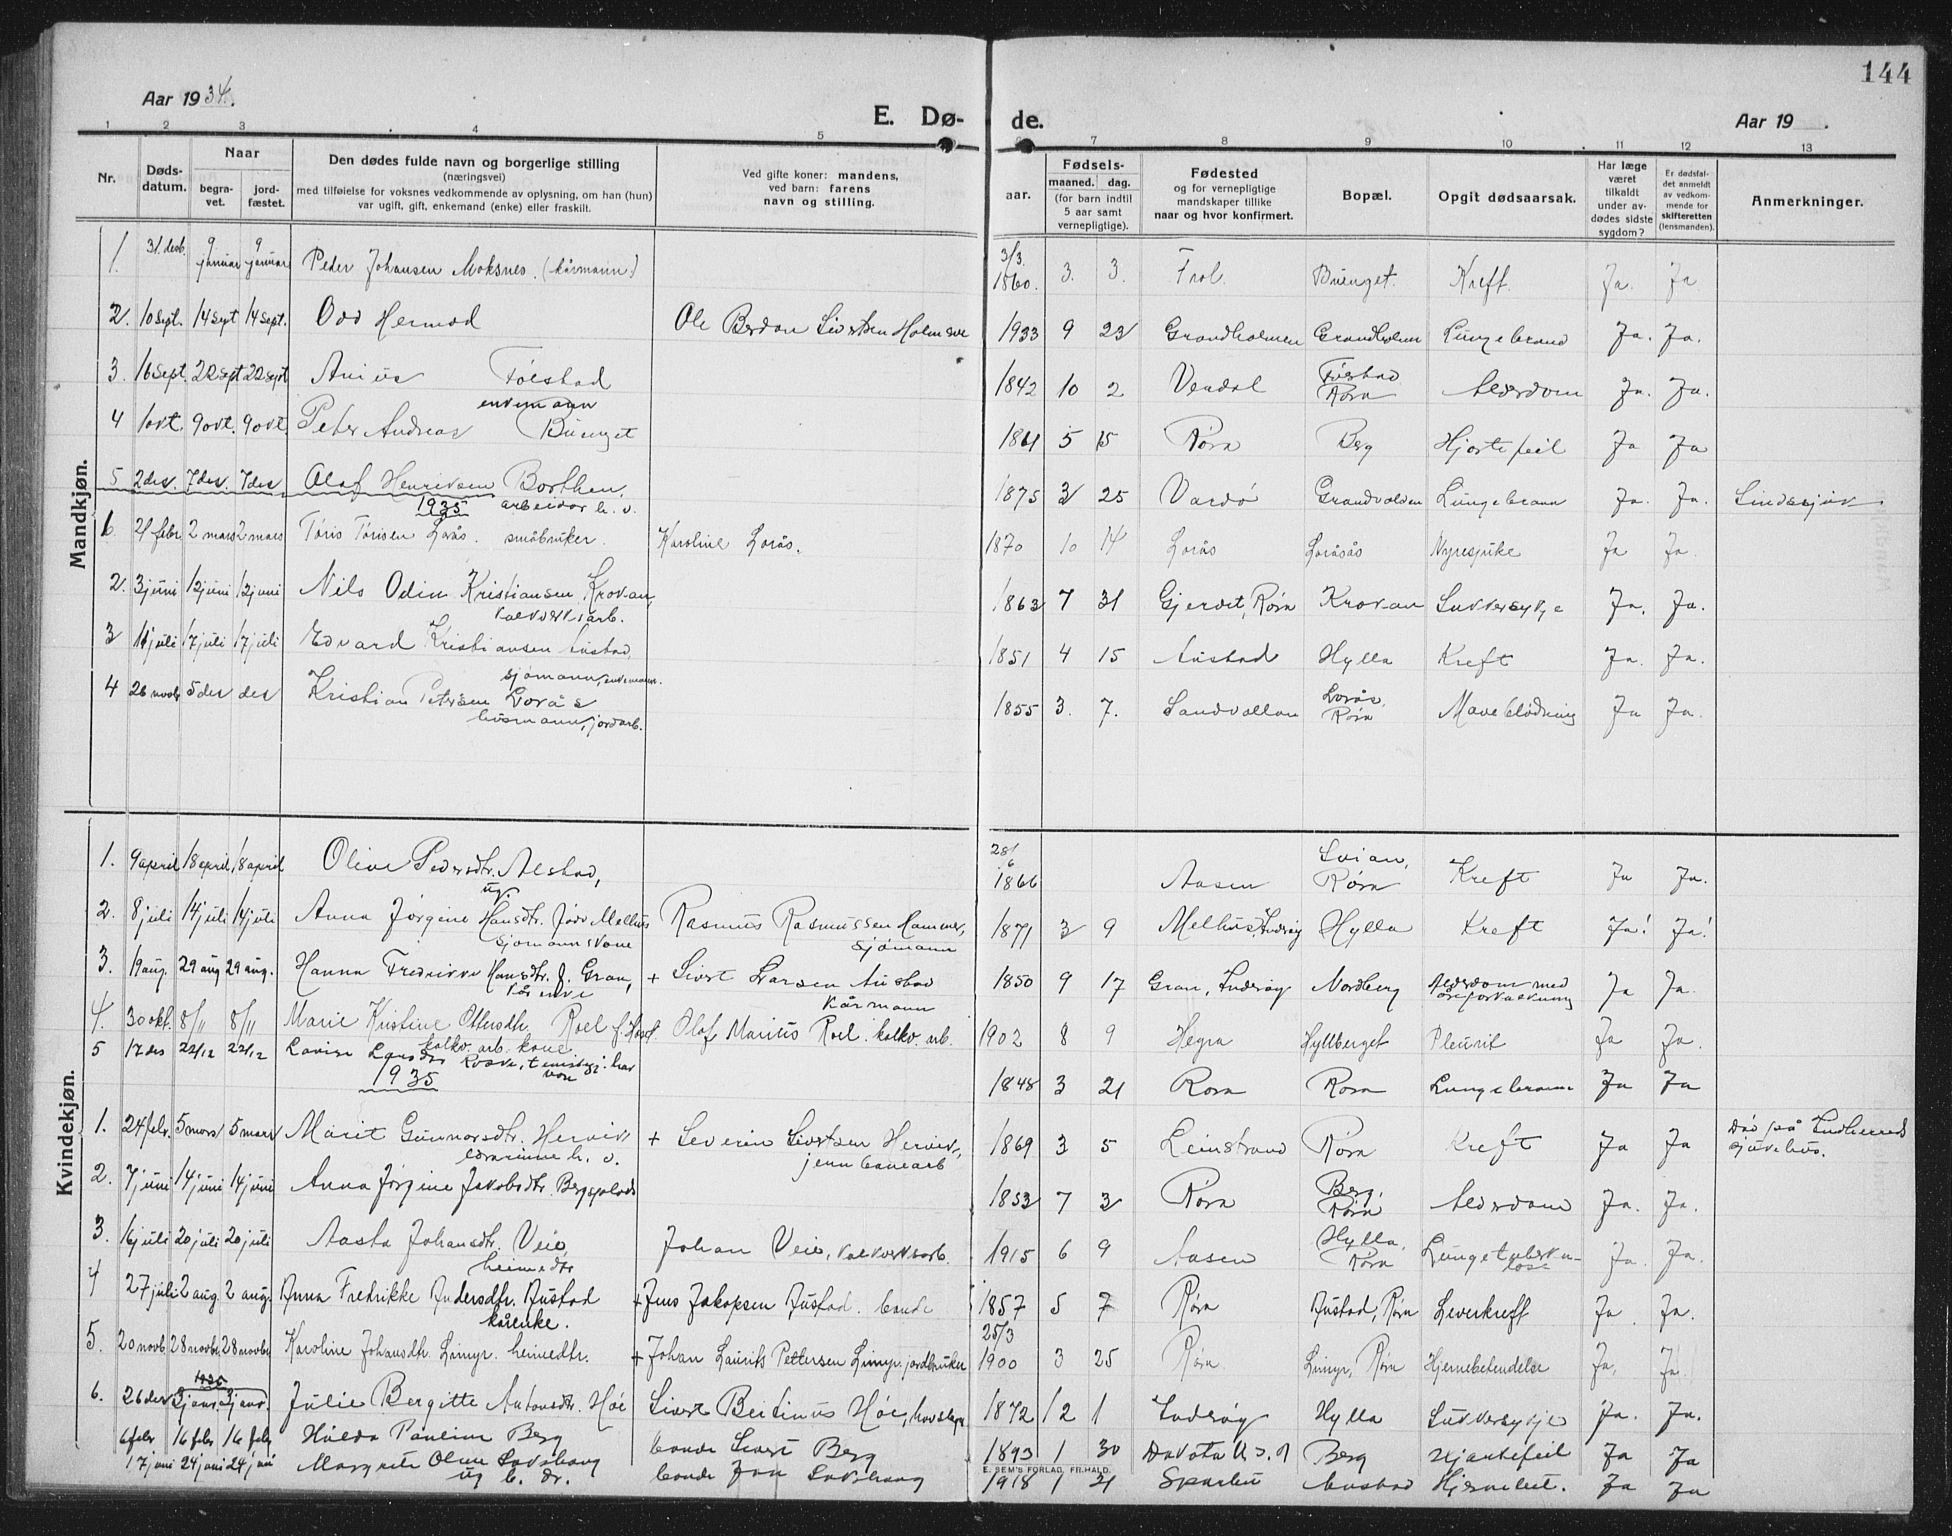 144
Aar 1934.
E. Dø-
de.
Aar 19 .
1 2 3 4 5 6 7 8 9 10 11 12 13
Nr.
Døds-
datum.
Naar
begra-
vet.
jord-
fæstet.
Den dødes fulde navn og borgerlige stilling
(næringsvei)
med tilføielse for voksnes vedkommende av oplysning, om han (hun)
var ugift, gift, enkemand (enke) eller fraskilt.
Ved gifte koner: mandens,
ved barn: farens
navn og stilling.
Fødsels-
aar.
maaned. dag.
(for barn indtil
5 aar samt
vernepligtige).
Fødested
og for vernepligtige
mandskaper tillike
naar og hvor konfirmert.
Bopæl.
Opgit dødsaarsak.
Har læge
været
tilkaldt
under av-
dødes sidste
sygdom?
Er dødsfal-
det anmeldt
av vedkom-
mende for
skifteretten
(lensmanden).
Anmerkninger.
Mandkjøn.
1. 31. desb. 9 januar 9 januar Peder Johansen Moksnes. (kårmann.) 3/3. 1860. 3. 3. Frol. Buenget. Kreft. Ja. Ja
2. 10 sept. 14 sept 14 sept. Odd Hermod Ole Berdon Sivertsen Holmsve 1933 9 23 Grandholmen Grandholmen Lungebrand Ja. Ja.
3. 16 sept. 22 sept 22 sept Anius Følstad 1842 10 2 Verdal Følstad Røra Alderdom Ja. Ja.
enkemann
4 1 okt. 9 okt. 9 okt. Peter Andreas Buenget 1861 5 15 Røra Berg Hjertefeil Ja Ja
5 2 des. 7 des. 7 des Olaf Henriksen Borthen, 1875 3 25 Vardø Grandvolden Lungebrann Ja. Ja. Sindssjuk
arbeider h. v.
1935
6 21 febr 2 mars 2 mars Tøris Tørisen Lorås. småbruker. Karoline Lorås. 1870 10 14 Lorås Loråsås Nyresjuke Ja Ja.
2. 3 juni 12 juni 12 juni Nils Odin Kristiansen Krokan, 1863 7 31 Gjerdet, Røra Krokan Sukkersyke Ja. Ja.
kalkverksarb.
3 11 juli 17 juli 17 juli Edvard Kristiansen Austad 1851 4 15 Austad Hylla Kreft Ja. Ja.
sjømann, enkemann.
4 26 novbr 5 des des Kristian Petersen Lorås 1855 3. 7. Sandvollan Lorås, Røra Maveblødning Ja Ja.
husmann, jordarb.
Kvindekjøn.
1. 9 april 18 april 18 april Oline Pedersdtr. Alstad, 28/6 1866 Aasen Svian, Røra Kreft Ja Ja.
ug.
2. 8 juli 14 juli 14 juli Anna Jørgine Hansdtr. født Melhus Rasmus Rasmussen Hammer, 1871 3 9 Melhus, Inderøy Hylla Kreft Ja! Ja!
sjømannskone sjømann
3. 19 aug. 29 aug 29 aug. Hanna Fredrikke Hansdtr. f. Gran, + Sivert Larsen Austad 1850 9 17 Gran, Inderøy Nordberg Alderdom med Ja Ja.
kårenke kårmann åreforkalkning
4. 30 okt. 8/11 8/11 Marie Kristine Ottersdtr. Roel Olaf Marius Roel. kalkv. arb. 1902 8 9 Hegra Hyllberget Pleurit Ja Ja.
kalkv. arb. kone.
5 17 des 22/12 22/12 Lovise Larsdtr 1848 3 21 Røra Røra Lungebrann Ja Ja
1935
1. 24 febr. 5 mars 5 mars Marit Gunnarsdtr. Hervik + Severin Sivertsen Hervik, 1869 3 5 Leinstrand Røra Kreft Ja Ja Død på Indherred sjukehus.
lærarinne h. v. jernbanearb
2. 7 juni 14 juni 14 juni Anna Jørgine Jakobsdtr. Bergsplads 1853 7 3 Røra Berg, Røra Alderdom Ja. Ja.
3. 16 juli 20 juli 20 juli Aasta Johansdtr. Veie, Johan Veie, kalkverksarb. 1915 6 9 Aasen Hylla, Røra Lungetuberku- Ja. Ja.
heimedtr lose
4 27 juli 2 aug. 2 aug. Anna Fredrikke Andersdtr. Austad + Jens Jakopsen Austad. bonde 1857 5 7 Røra Austad, Røra Leverkreft Ja. Ja.
kårenke.
5. 20 novb. 28 novbr. 28 novbr. Karoline Johansdtr. Limyr. heimedtr. + Johan Laurits Pettersen Limyr. jordbruker 25/3 1900 3 25 Røra. Limyr, Røra Hjernebetendelse Ja, Ja.
1936
6. 26 des 3 janr. 3 janr. Julie Bergitte Antonsdtr. Høe Sivert Beitinus Høe, 1872 12 1 Inderøy Hylla Sukkersykje Ja. Ja.
6 febr 16 febr 16 febr Hilda Pauline Berg bonde Sivert Berg 1893 1 30 Dakota U.S.A Berg Hjertefeil Ja Ja
E. SEM'S FORLAG, FR.HALD.
17 juni 24 juni 24 juni Margrete Oline bonde Jon 1918 1 21 Sparbu Austad Ja Ja
ug b. dr.